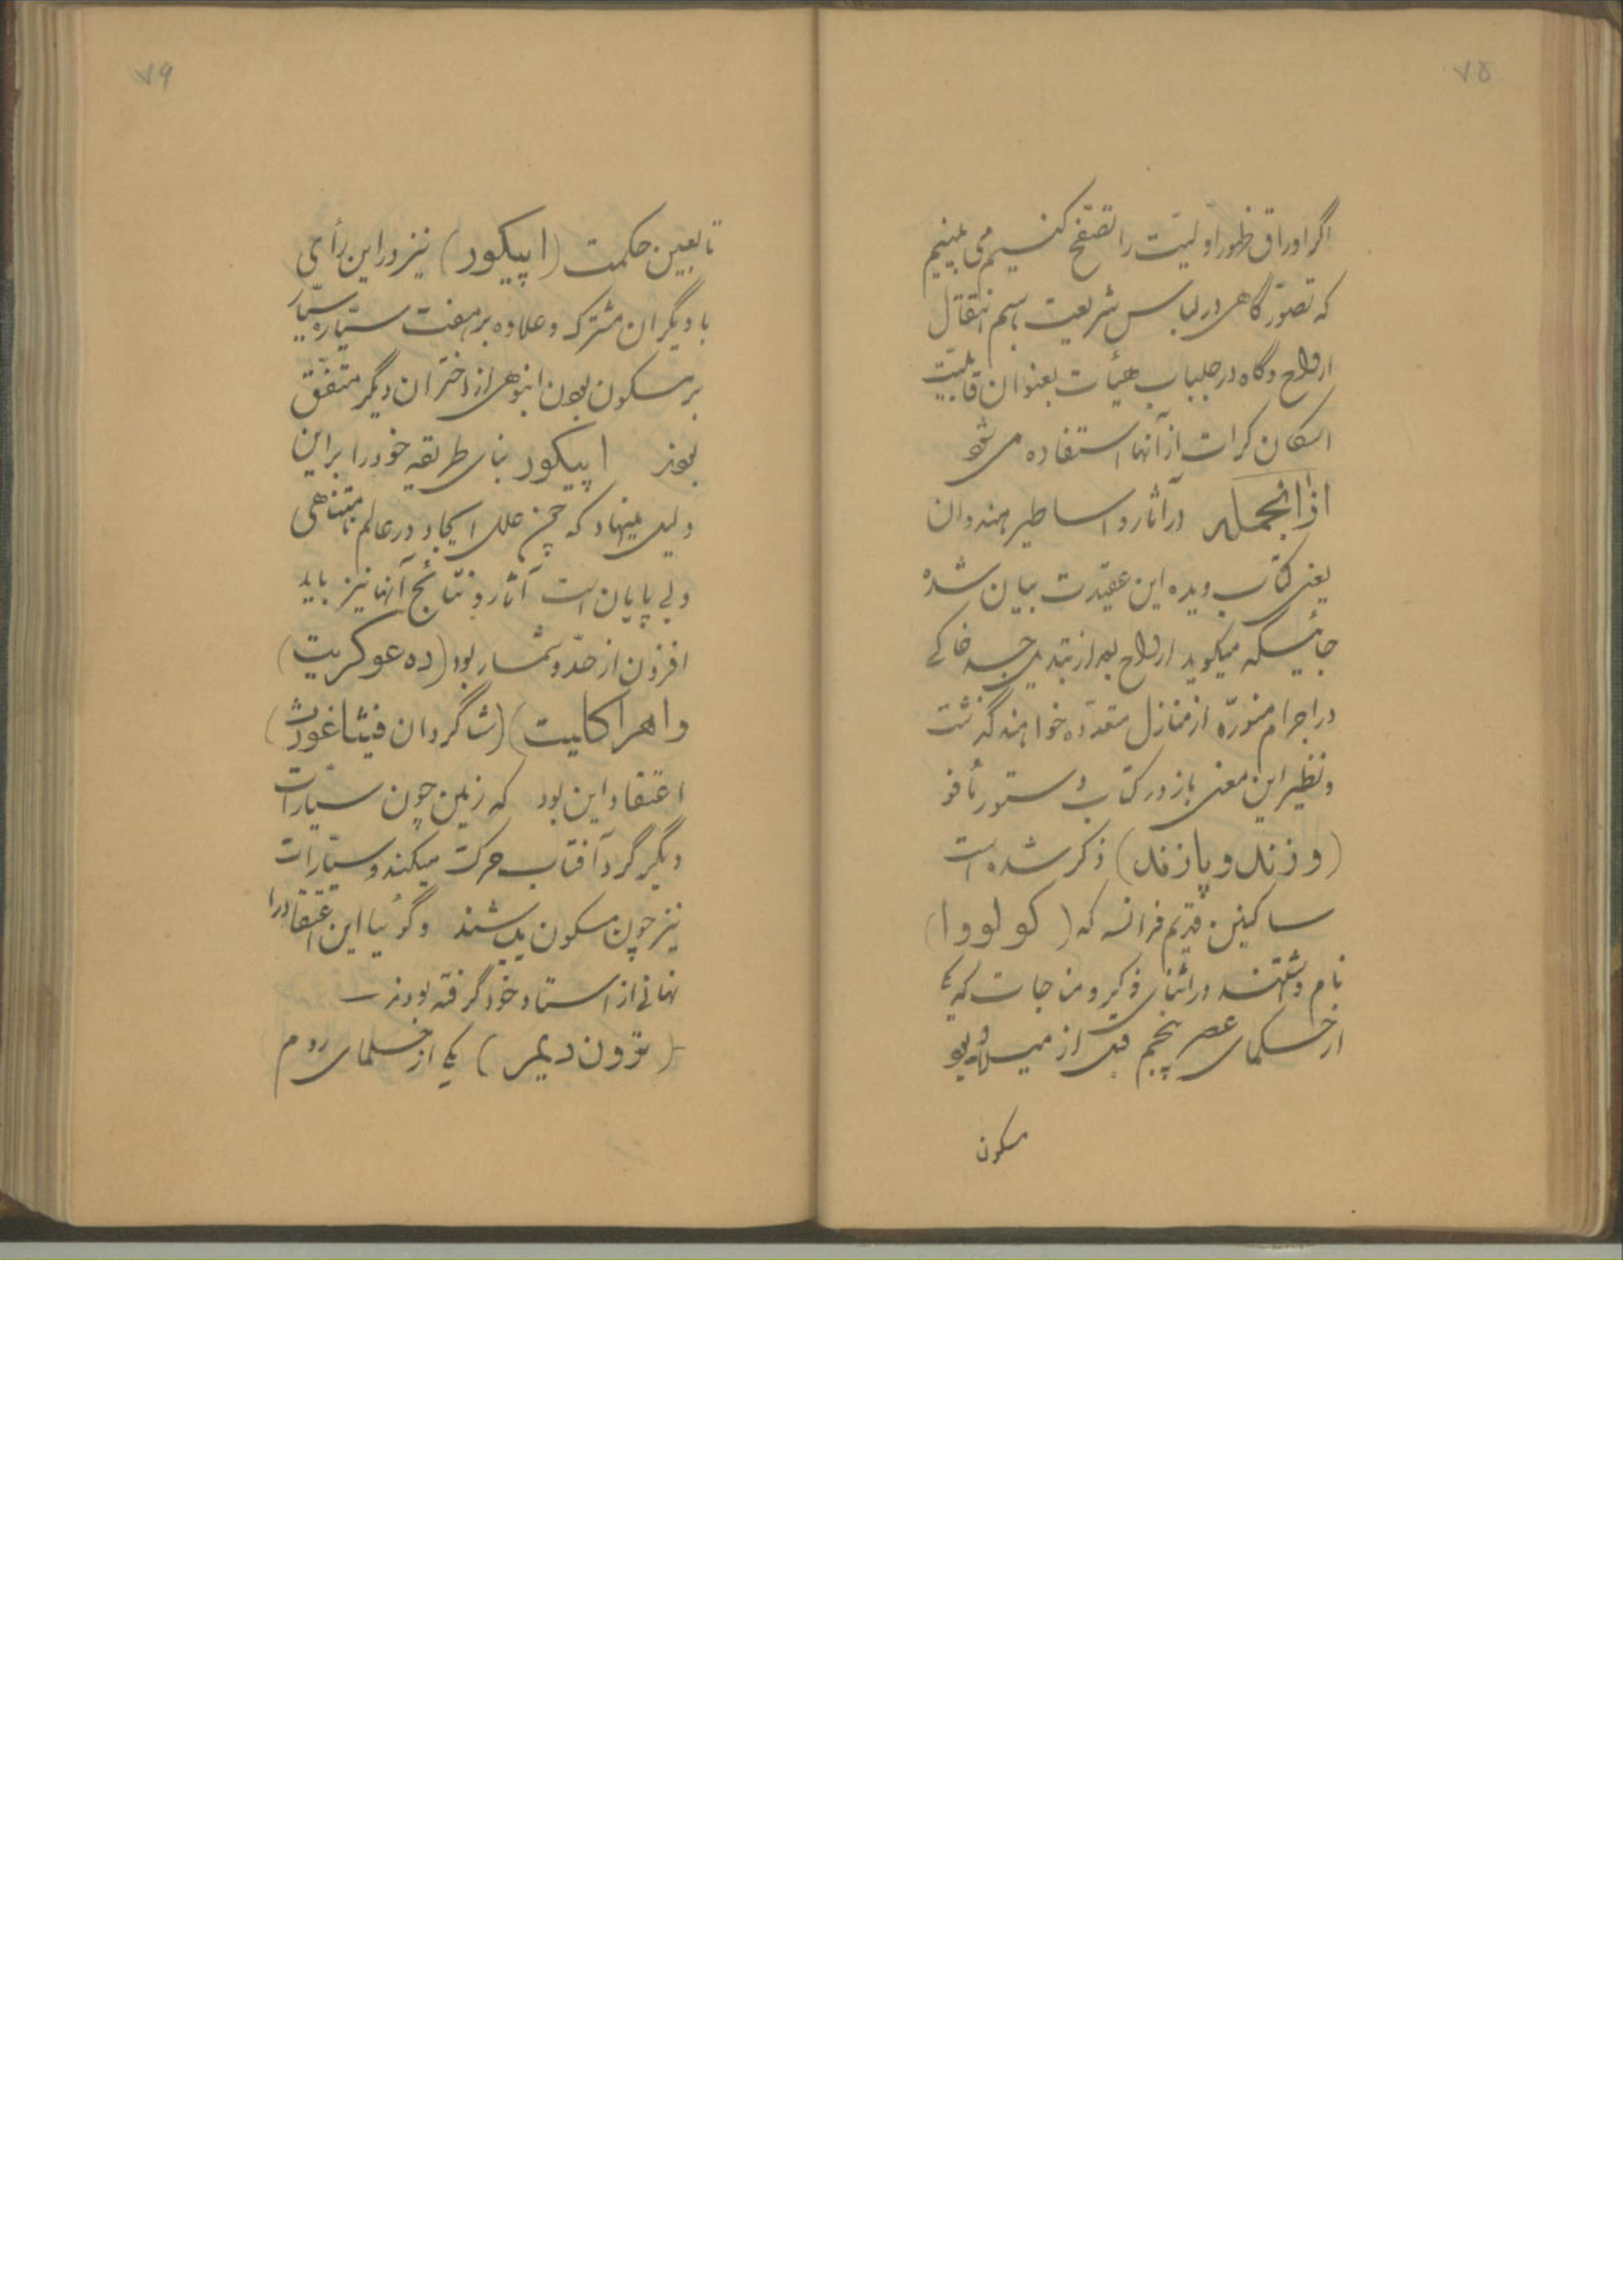 ۷۵
اگر اوراق ظهور اولیت را تصفح کنیم می بینیم
که تصوّر گاهی در لباس شریعت باسم انتقال
ارواح و گاه در جلباب هیأت بعنوان قابلیّت
اسکان کرات از آنها استفاده می شود
ازانجمله در آثار و اساطیر هندوان
یعنی کتاب ویده این عقیدت بیان شده
جائیکه میگوید ارواح بعد از تبدیل جسد خاکی
در اجرام منوّره از منازل متعدّده خواهند گذشت
و نظیر این معنی باز در کتاب دستور نافذ
(وزند و پازند) ذکر شده است
ساکنین قدیم فرانسه که (کولووا)
نام داشتند در اثنای ذکر و مناجات که یکی
از حکمای عصر پنجم قبل از میلاد بود
مسکون
۷۶
تابعین حکمت (اپیکور) نیز در این رأی
با دیگران مشترک و علاوه بر هفت سیّاره سیّار
بر مسکون بودن انبوهی از اختران دیگر متفّق
بودند اپیکور بنای طریقه خود را بر این
دلیل مینهاد که چون علل ایجاد در عالم نامتناهی
و بی پایان است آثار و نتائج آنها نیز باید
افزون از حدّ و شمار بود (ده عوکریت)
و اهراکلیت) (شاگردان فیثاغورث)
اعتقاد این بود که زمین چون سیّارات
دیگر گرد آفتاب حرکت میکند و سیّارات
نیز چون مسکون میباشند و گویا این اعتقاد را
نهانی از استاد خود گرفته بودند
یکی از حکمای روم